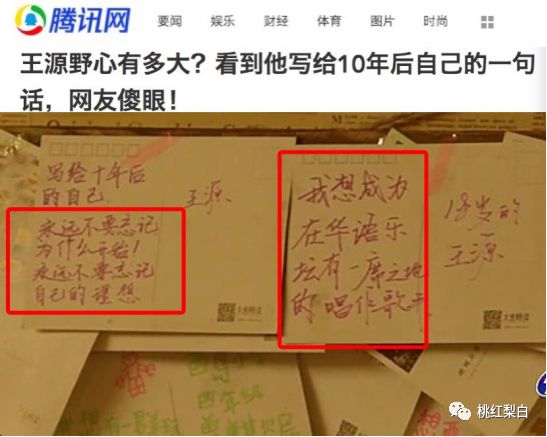 腾讯网
要闻 娱乐 财经 体育 图片 时尚
王源野心有多大？看到他写给10年后自己的一句
话，网友傻眼！
写给十年后
的自己
王源
永远不要忘记
为什么开始！
永远不要忘记
自己的理想
我想成为
在华语乐
坛有一席之地
的唱作歌手
18岁的
王源
四年级
桃红梨白